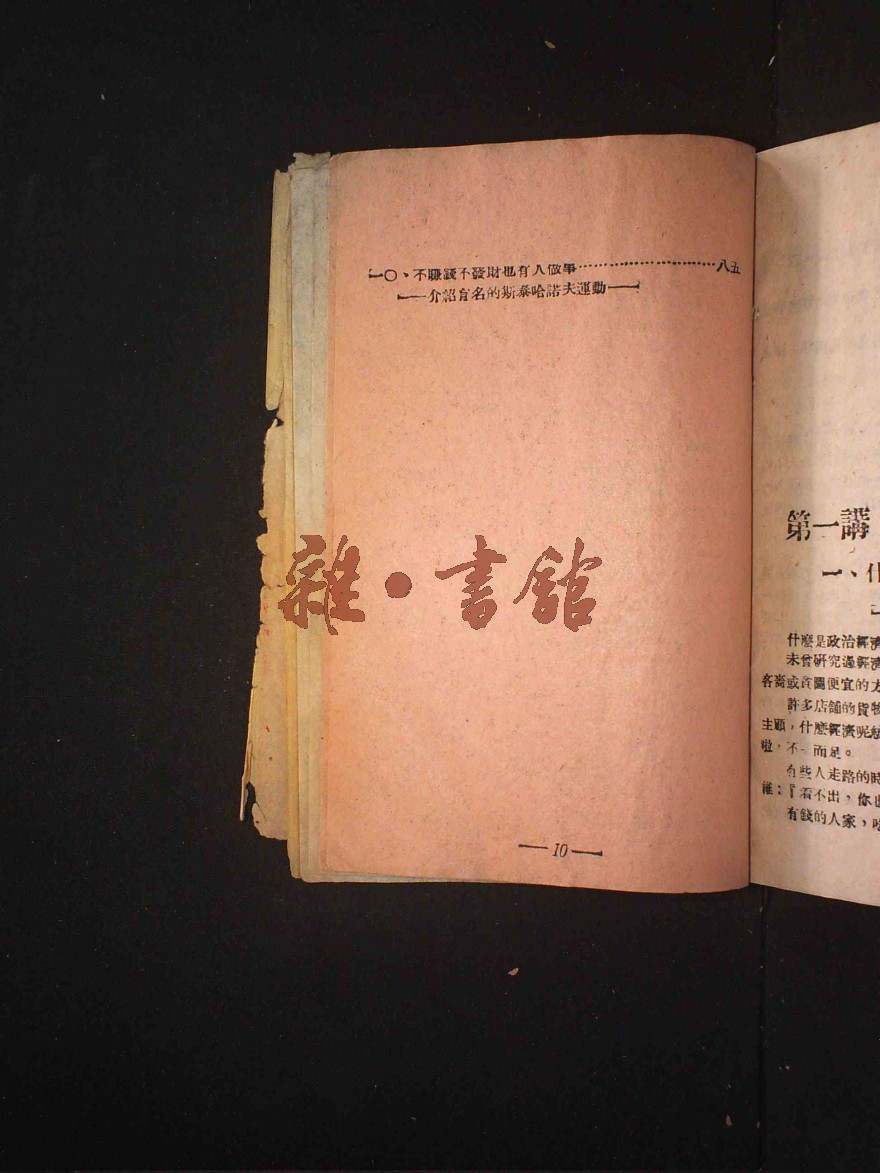 一〇、不賺錢不發財也有人做事……………………八五
——介紹有名的斯泰哈諾夫運動——
雜·書館
— 10 —
第一講
一、什
什麼是政治經濟
未曾研究過經濟
吝嗇或貪圖便宜的方
許多店舖的貨物
主顧，什麼經濟呢
啦，不一而足。
有些人走路的時
維：『看不出，你也
有錢的人家，